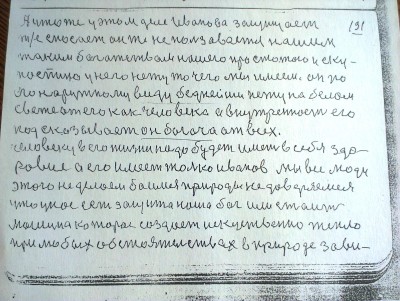 191
А и тоже у этом деле Иванова защищает
т/е спасает он тоже не ползавается нашем
таким богатствам нашего простотою и ску-
постию у него нету то чего мы имеем. он по
по наружному виду беднейши нету на белом
свете этего как человека а внутреность его
подсказывает он богача от всех.
человеку в его жизни надо будет иметь в себя здо-
ровие а его имеет толко Иванов мы все люди
этого не делаем боимся природы не доверяемся
что у нас есть защита наша бог или стоит
машина которае создает искуственно тепло
при любых обстоятельствах в природе зави-